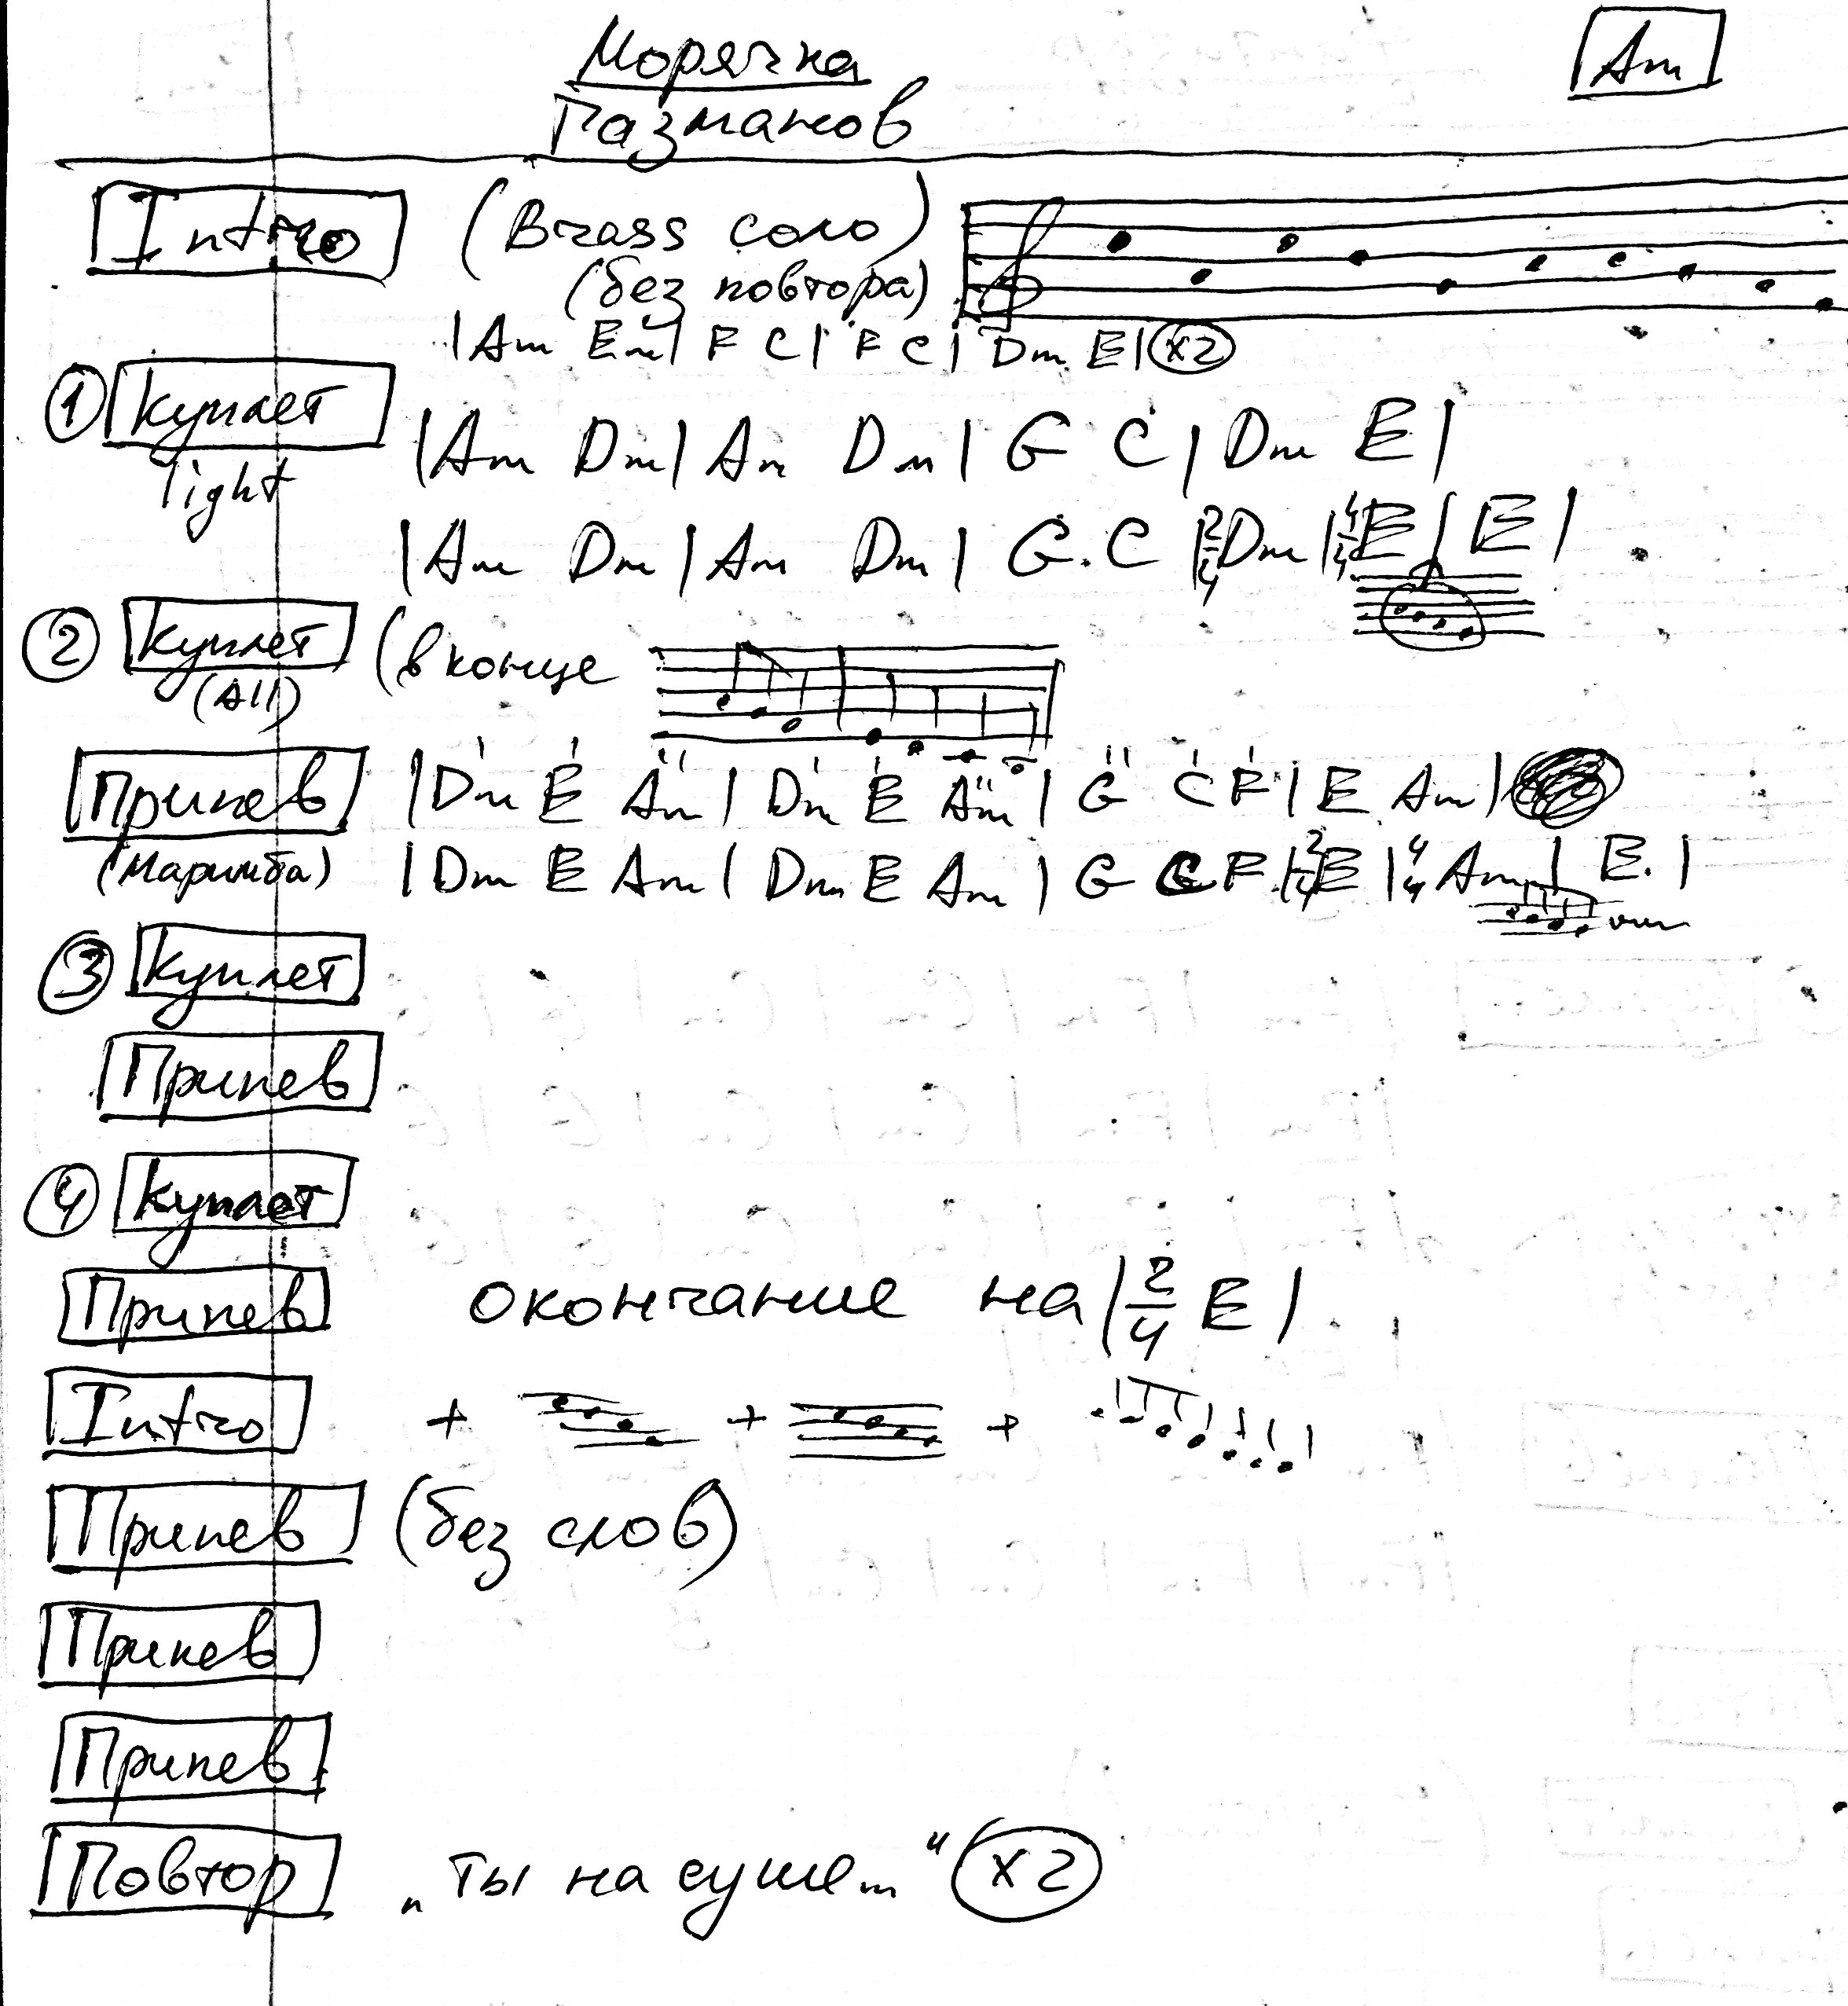 Морячка
Am
Газманов
Intro (Brass соло)
(без повтора)
|Am Em| F C| F C| Dm E| x2
1 Куплет |Am Dm| Am Dm| G C| Dm E|
light
|Am Dm| Am Dm| G C |2/4 Dm |4/4 E | E |
2 Куплет (в конце
(All)
Припев |Dm E Am| Dm E Am| G C F| E Am|
(Маримба) |Dm E Am| Dm E Am| G C F |2/4 E |4/4 Am | E. |
3 Куплет
Припев
4 Куплет
Припев окончание на |2/4 E|
Intro + + +
Припев (без слов)
Припев
Припев
Повтор „ты на суше..." x2